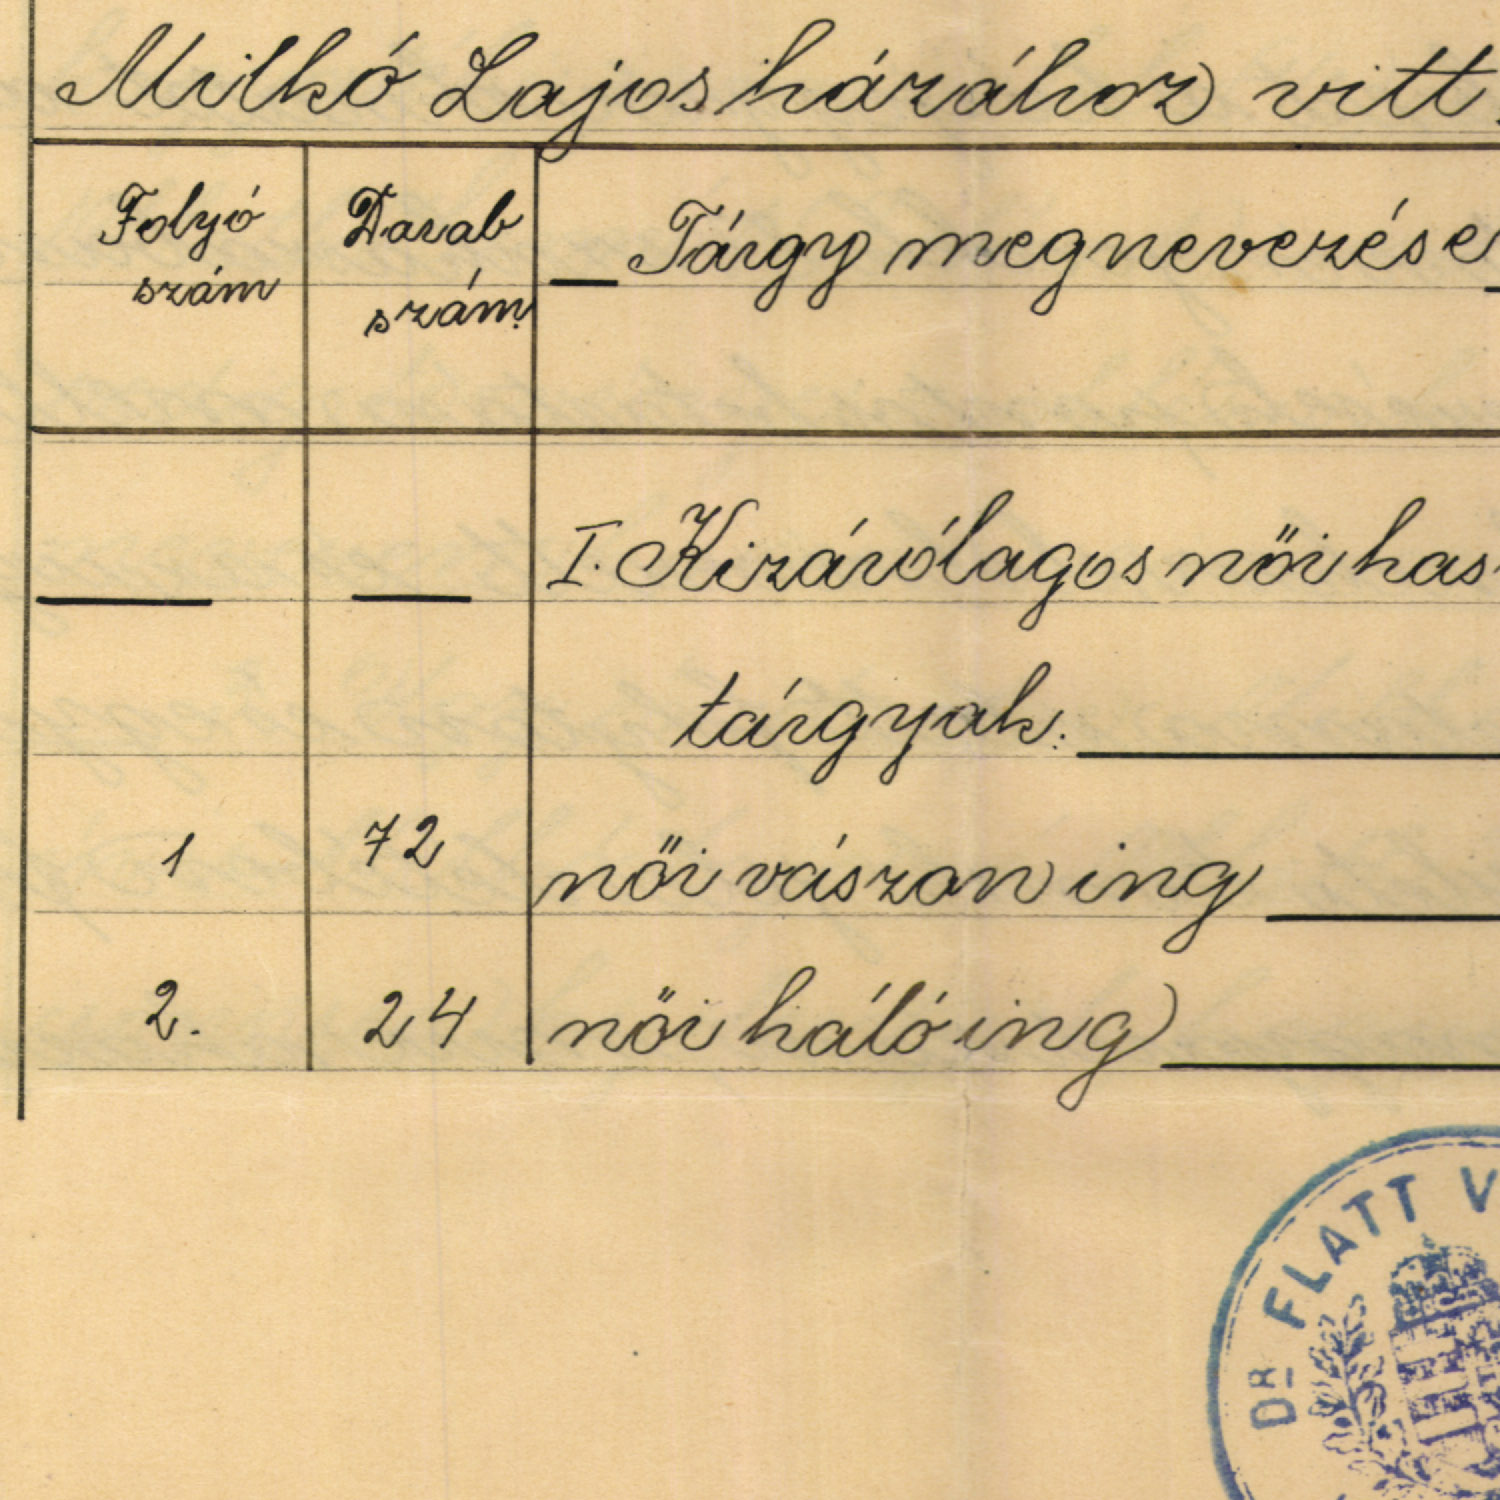 Milkó Lajos házához vitt
Folyó
szám
Darab
szám.
Tárgy megnevezése
I. Kizárólagos női has
tárgyak.
1 72 női vászon ing
2. 24 női háló ing
DR FLATT V